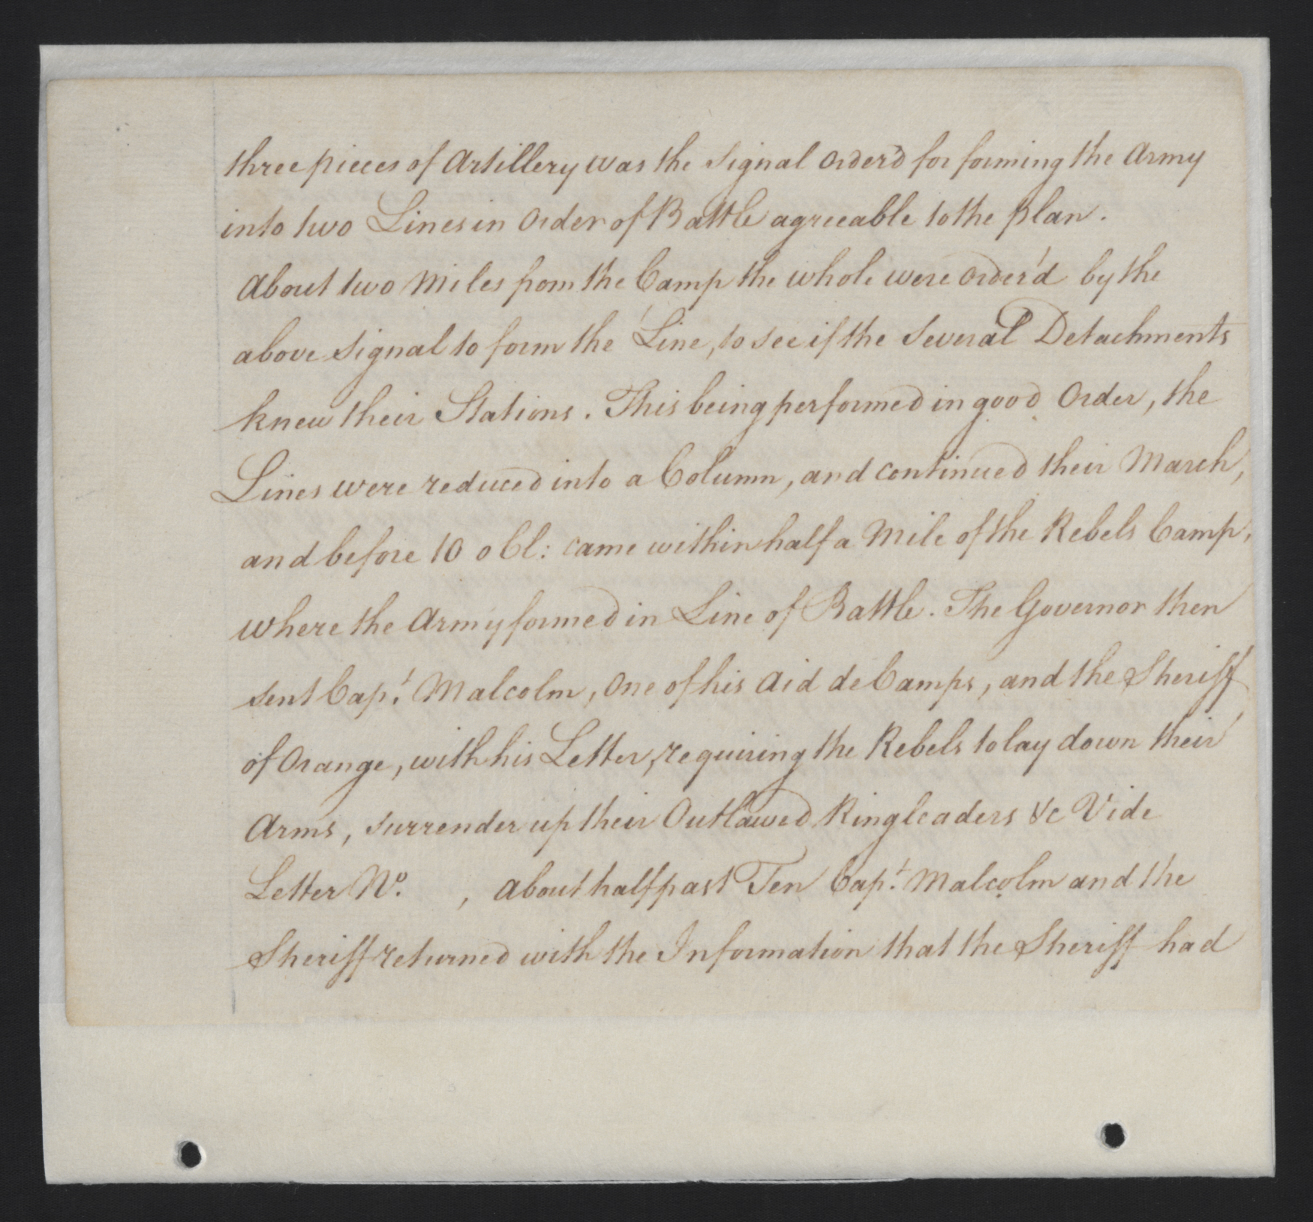 three pieces of Artillery was the Signal order'd for forming the Army
into two Lines in Order of Battle agreeable to the plan.
About two Miles from the Camp the whole were order'd by the
above signal to form the Line, to see if the several Detachments
knew their Stations. This being performed in good Order, the
Lines were reduced into a Column, and continued their March,
and before 10 oCl: came within half a Mile of the Rebels Camp,
where the Army formed in Line of Battle. The Governor then
sent Capt. Malcolm, one of his Aid de Camps, and the Sheriff
of Orange, with his Letter, requiring the Rebels to lay down their
Arms, surrender up their Outlawed Ringleaders &c Vide
Letter No. , About half past Ten Capt. Malcolm and the
Sheriff returned with the Information that the Sheriff had